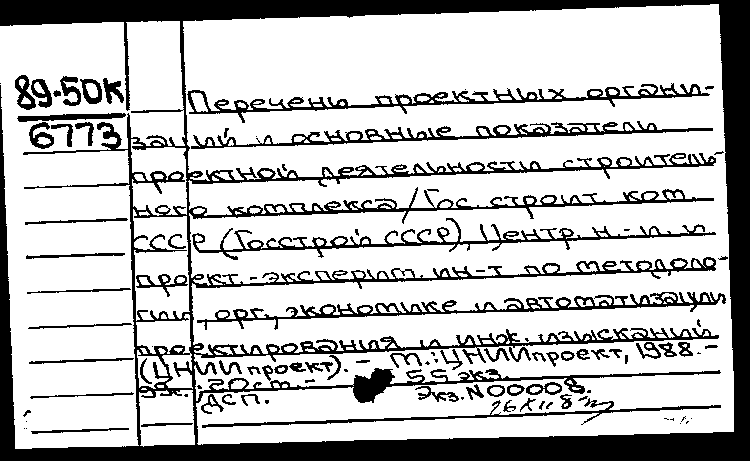 89-50К
6773
Перечень проектных органи-
заций и основные показатели
проектной деятельности строитель-
ного комплекса/Гос. строит. ком.
СССР (Госстрой СССР), Центр. н.-и. и
проект.-эксперим. ин-т по методоло-
гии, орг., экономике и автоматизации
проектирования и инж. изысканий
(ЦНИИпроект). - М.: ЦНИИпроект, 1988. -
99с.; 20см. - 55 экз.
ДСП. Экз. N 00008.